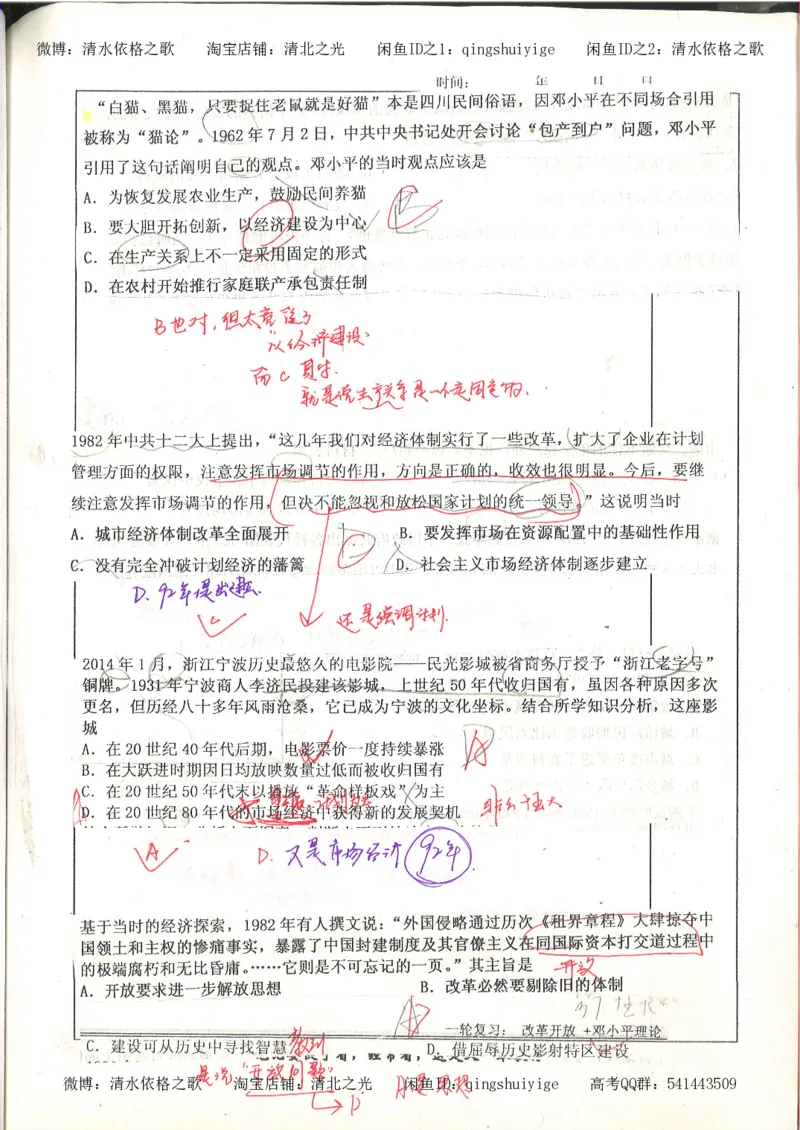 微博：清水依格之歌 淘宝店铺：清北之光 闲鱼ID之1：qingshuiyige 闲鱼ID之2：清水依格之歌
时间： 年 月 日
“白猫、黑猫，只要捉住老鼠就是好猫”本是四川民间俗语，因邓小平在不同场合引用
被称为“猫论”。1962年7月2日，中共中央书记处开会讨论“包产到户”问题，邓小平
引用了这句话阐明自己的观点。邓小平的当时观点应该是
A．为恢复发展农业生产，鼓励民间养猫
B．要大胆开拓创新，以经济建设为中心
C．在生产关系上不一定采用固定的形式
D．在农村开始推行家庭联产承包责任制
B也对，但太竟
以经济建设
而C具体
就是说生产关系是不一定固定的.
1982年中共十二大上提出，“这几年我们对经济体制实行了一些改革，扩大了企业在计划
管理方面的权限，注意发挥市场调节的作用，方向是正确的，收效也很明显。今后，要继
续注意发挥市场调节的作用，但决不能忽视和放松国家计划的统一领导。”这说明当时
A．城市经济体制改革全面展开 B．要发挥市场在资源配置中的基础性作用
C．没有完全冲破计划经济的藩篱 D．社会主义市场经济体制逐步建立
D. 92年提出
C 还是强调计划.
2014年1月，浙江宁波历史最悠久的电影院——民光影城被省商务厅授予“浙江老字号”
铜牌。1931年宁波商人李济民投建该影城，上世纪50年代收归国有，虽因各种原因多次
更名，但历经八十多年风雨沧桑，它已成为宁波的文化坐标。结合所学知识分析，这座影
城
A．在20世纪40年代后期，电影票价一度持续暴涨
B．在大跃进时期因日均放映数量过低而被收归国有
C．在20世纪50年代末以播放“革命样板戏”为主
D．在20世纪80年代的市场经济中获得新的发展契机
A D. 又是市场经济 92年
基于当时的经济探索，1982年有人撰文说：“外国侵略通过历次《租界章程》大肆掠夺中
国领土和主权的惨痛事实，暴露了中国封建制度及其官僚主义在同国际资本打交道过程中
的极端腐朽和无比昏庸。……它则是不可忘记的一页。”其主旨是
开放
A．开放要求进一步解放思想 B．改革必然要剔除旧的体制
一轮复习： 改革开放 +邓小平理论
C．建设可从历史中寻找智慧 D．借屈辱历史影射特区建设
教训
是说“开放问题”
微博：清水依格之歌 淘宝店铺：清北之光 闲鱼ID：qingshuiyige 高考QQ群：541443509